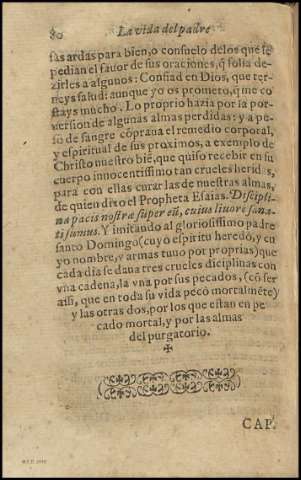 80 La vida del padre
sas ardas para bien, o consuelo delos que le
pedian el fauor de sus oraciones, q̃ solia de-
zirles a algunos: Confiad en Dios, que ter-
neys salud: aunque yo os prometo, q̃ me co
stays mucho. Lo proprio hazia por la con-
uersion de algunas almas perdidas: y a pe-
so de sangre cõpraua el remedio corporal,
y espiritual de sus proximos, a exemplo de
Christo nuestro bié, que quiso recebir en su
cuerpo innocentissimo tan crueles heridas,
para con ellas curar las de nuestras almas,
de quien dixo el Propheta Esaias. Discipli-
na pacis nostræ super eũ, cuius liuore sana-
ti sumus. Y imitando al gloriosissimo padre
santo Domingo (cuyo espiritu heredò, y cu
yo nombre, y armas tuuo por proprias) que
cada dia se daua tres crueles diciplinas con
vna cadena, la vna por sus pecados, (cõ ser
assi, que en toda su vida pecò mortalmẽte)
y las otras dos, por los que estan en pe
cado mortal, y por las almas
del purgatorio.
CAP.